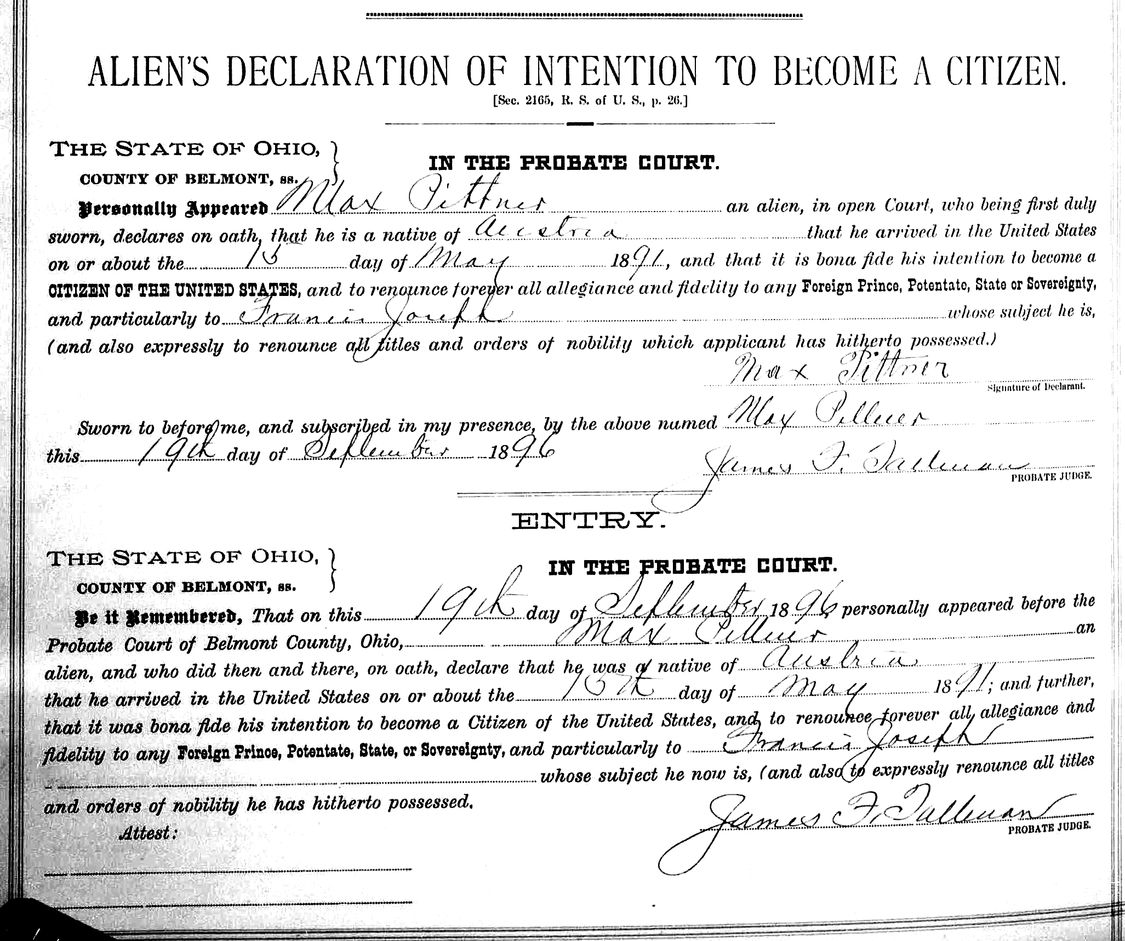 ALIEN'S DECLARATION OF INTENTION TO BECOME A CITIZEN.
[Sec. 2165, R. S. of U. S., p. 26.]
THE STATE OF OHIO, }
COUNTY OF BELMONT, ss.
IN THE PROBATE COURT.
Personally Appeared Max Pittner an alien, in open Court, who being first duly
sworn, declares on oath, that he is a native of Austria that he arrived in the United States
on or about the 15 day of May 1891, and that it is bona fide his intention to become a
CITIZEN OF THE UNITED STATES, and to renounce forever all allegiance and fidelity to any Foreign Prince, Potentate, State or Sovereignty,
and particularly to Francis Joseph whose subject he is,
(and also expressly to renounce all titles and orders of nobility which applicant has hitherto possessed.)
Max Pittner
Signature of Declarant.
Sworn to before me, and subscribed in my presence, by the above named Max Pittner
this 19th day of September 1896
James F. Tallman
PROBATE JUDGE.
ENTRY.
THE STATE OF OHIO, }
COUNTY OF BELMONT, ss.
IN THE PROBATE COURT.
Be it Remembered, That on this 19th day of September 1896 personally appeared before the
Probate Court of Belmont County, Ohio, Max Pittner an
alien, and who did then and there, on oath, declare that he was a native of Austria
that he arrived in the United States on or about the 15th day of May 1891; and further,
that it was bona fide his intention to become a Citizen of the United States, and to renounce forever all allegiance and
fidelity to any Foreign Prince, Potentate, State, or Sovereignty, and particularly to Francis Joseph
whose subject he now is, (and also to expressly renounce all titles
and orders of nobility he has hitherto possessed.
Attest:
James F. Tallman
PROBATE JUDGE.